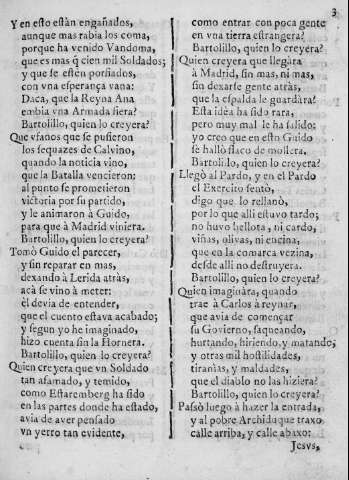 3
Y en esto estàn engañados,
aunque mas rabia los coma,
porque ha venido Vandoma,
que es mas q̃ cien mil Soldados;
y que se estèn porfiados,
con vna esperança vana:
Daca, que la Reyna Ana
embia vna Armada fiera?
Bartolillo, quien lo creyera?
Que vfanos que se pusieron
los sequazes de Calvino,
quando la noticia vino,
que la Batalla vencieron:
al punto se prometieron
victoria por su partido,
y le animaron à Guido,
para que à Madrid viniera.
Bartolillo, quien lo creyera?
Tomò Guido el parecer,
y sin reparar en mas,
dexando à Lerida atràs,
acà se vino à meter:
èl devia de entender,
que el cuento estava acabado;
y segun yo he imaginado,
hizo cuenta sin la Hornera.
Bartolillo, quien lo creyera?
Quien creyera que vn Soldado
tan afamado, y temido,
como Estaremberg ha sido
en las partes donde ha estado,
avia de aver pensado
vn yerro tan evidente,
como entrar con poca gente
en vna tierra estrangera?
Bartolillo, quien lo creyera?
Quien creyera que llegàra
à Madrid, sin mas, ni mas,
sin dexarse gente atràs,
que la espalda le guardàra?
Esta idèa ha sido rara,
pero muy mal le ha salido:
yo creo que en esto Guido
se hallò flaco de mollera.
Bartolillo, quien lo creyera?
Llegò al Pardo, y en el Pardo
el Exercito sentò,
digo que lo rellanò,
por lo que alli estuvo tardo;
no huvo bellota, ni cardo,
viñas, olivas, ni encina,
que en la comarca vezina,
desde alli no destruyera.
Bartolillo, quien lo creyera?
Quien imaginàra, quando
trae à Carlos à reynar,
que avia de començar
su Govierno, saqueando,
hurtando, hiriendo, y matando;
y otras mil hostilidades,
tiranìas, y maldades,
que el diablo no las hiziera?
Bartolillo, quien lo creyera?
Passò luego à hazer la entrada,
y al pobre Archiduque traxo
calle arriba, y calle abaxo:
Jesvs,